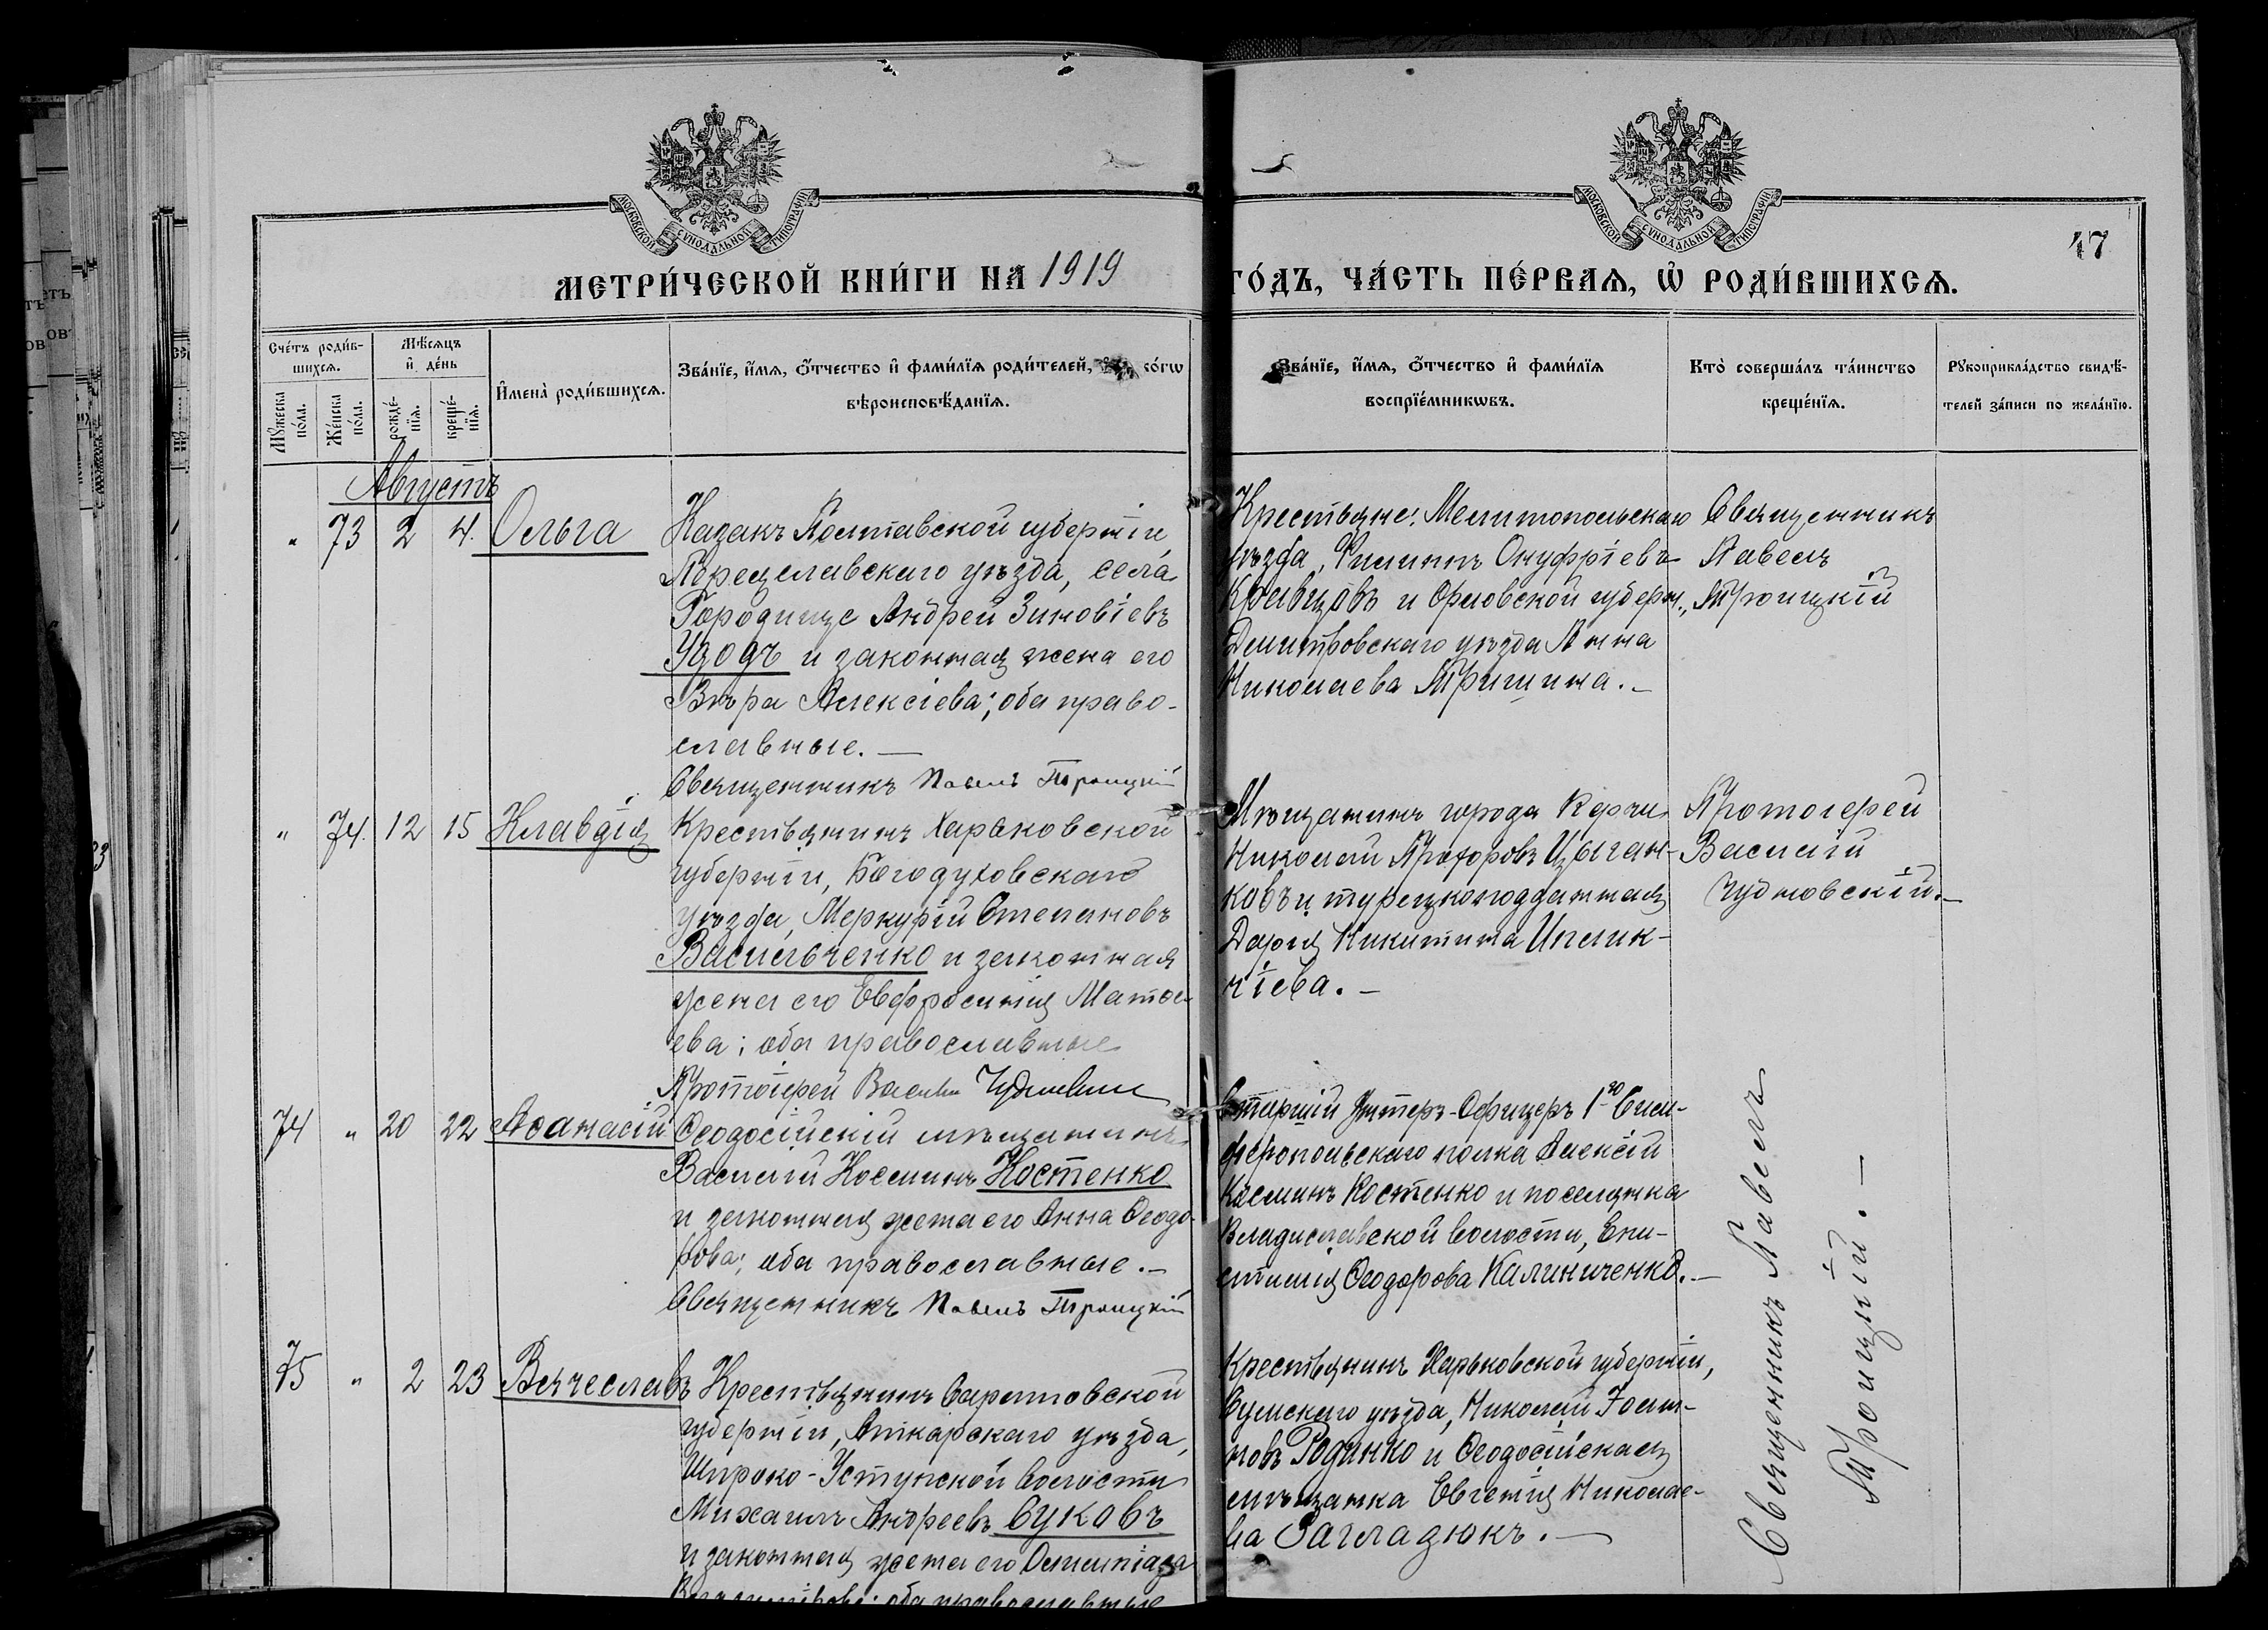 МОСКОВСКОЙ СУНОДАЛЬНОЙ ТИПОГРАФІИ
МОСКОВСКОЙ СУНОДАЛЬНОЙ ТИПОГРАФІИ
47
МЕТРИ́ЧЕСКОЙ КНИ́ГИ НА 1919 ГО́ДЪ, ЧА́СТЬ ПЕ́РВАѦ, Ѽ РОДИ́ВШИХСѦ.
Сче́тъ роди́в-
шихсѧ.
Мꙋ́жеска по́ла.
Же́нска по́ла.
Мѣ́сѧцъ
и҆ де́нь
рожде́-
нїѧ.
креще́-
нїѧ.
И҆мена̀ роди́вшихсѧ.
Зва́нїе, и҆́мѧ, ѻ҆́тчество и҆ фами́лїѧ роди́телей,
вѣроисповѣ́данїѧ.
Зва́нїе, и҆́мѧ, ѻ҆́тчество и҆ фами́лїѧ
воспрїе́мникѡвъ.
Кто̀ соверша́лъ та́инство
креще́нїѧ.
Рꙋкоприкла́дство свидѣ́-
телей за́писи по жела́нїю.
Августъ
" 73 2 4. Ольга
Казакъ Полтавской губерніи,
Переяславскаго уѣзда, села
Городище Андрей Зиновіевъ
Удодъ и законная жена его
Вѣра Алексіева; оба право-
славные. —
Священникъ Павелъ Троицкій
Крестьяне: Мелитопольскаго
уѣзда, Филиппъ Онуфріевъ
Кравцовъ и Орловской губерн.,
Дмитровскаго уѣзда Анна
Николаева Тришина. —
Священникъ
Павелъ
Троицкій
" 74. 12 15 Клавдія
Крестьянинъ Харьковской
губерніи, Богодуховскаго
уѣзда, Меркурій Стефановъ
Васильченко и законная
жена его Евфросинія Матѳе-
ева; оба православные
Протоіерей Василій Чудновскій
Мѣщанинъ города Керчи
Николай Прохоровъ Цыган-
ковъ и турецкоподданная
Дарія Никитина Иплик-
чіева. —
Протоіерей
Василій
Чудновскій. —
74 " 20 22 Аѳанасій
Ѳеодосійскій мѣщанинъ
Василій Косминъ Костенко
и законная жена его Анна Ѳеодо-
рова; оба православные. —
Священникъ Павелъ Троицкій
Старшій Унтеръ-Офицеръ 1го Сим-
феропольскаго полка Алексій
Косминъ Костенко и поселянка
Владиславской волости, Епи-
стимія Ѳеодорова Калиниченко. —
75 " 2 23 Вячеславъ
Крестьянинъ Саратовской
губерніи, Аткарскаго уѣзда,
Широко-Уступской волости
Михаилъ Андреевъ Суковъ
и законная жена его Олимпіада
Владимірова; оба православные
Крестьянинъ Харьковской губерніи,
Сумскаго уѣзда, Николай Іоан-
новъ Родинко и Ѳеодосійская
мѣщанка Евгенія Николае-
ва Загладюкъ. —
Священникъ Павелъ
Троицкій. —